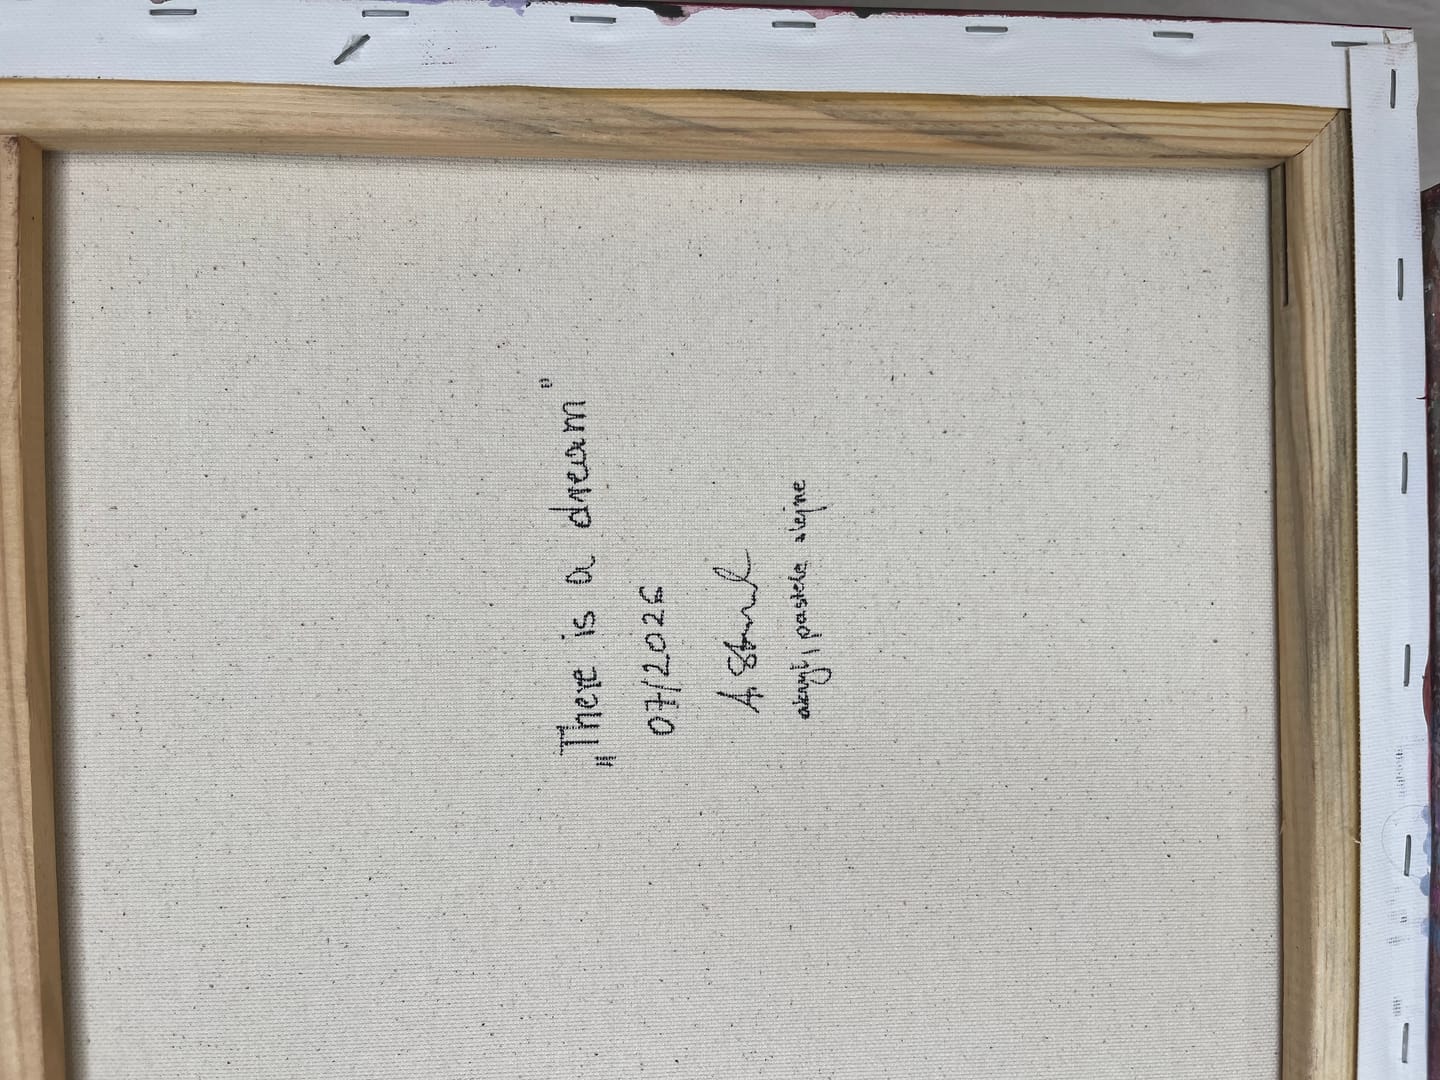 „There is a dream”
07/2026
A. 
akryl, pastele olejne